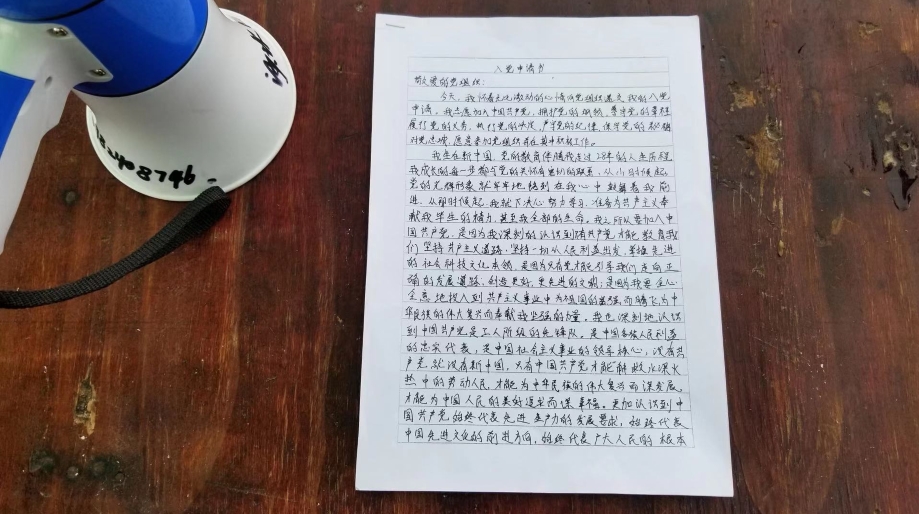 入党申请书
敬爱的党组织：
今天，我怀着无比激动的心情向党组织递交我的入党
申请。我志愿加入中国共产党，拥护党的纲领，遵守党的章程，
履行党的义务，执行党的决定，严守党的纪律，保守党的秘密，
对党忠诚，愿意参加党组织并在其中积极工作。
我生在新中国，党的教育伴随我走过28年的人生历程，
我成长的每一步都与党的关怀有密切的联系，从小时候起
党的光辉形象就牢牢地铭刻在我心中鼓舞着我前
进，从那时候起，我就下决心努力学习，准备为共产主义奉
献我毕生的精力，甚至我全部的生命。我之所以要加入中
国共产党，是因为我深刻的认识到只有共产党才能教育我
们坚持共产主义道路，坚持一切从人民利益出发，掌握先进
的社会科技文化本领，是因为只有党才能引导我们走向正
确的发展道路，创造更好，更先进的文明；是因为我要全心
全意地投入到共产主义事业中为祖国的富强而腾飞为中
华民族的伟大复兴而奉献我坚强的力量。我也深刻地认识
到中国共产党是工人阶级的先锋队，是中国各族人民利益
的忠实代表，是中国社会主义事业的领导核心；没有共
产党就没有新中国，只有中国共产党才能解救水深火
热中的劳动人民，才能为中华民族的伟大复兴而谋发展，
才能为中国人民的美好追求而谋幸福。更加认识到中
国共产党始终代表先进生产力的发展要求，始终代表
中国先进文化的前进方向，始终代表广大人民的根本